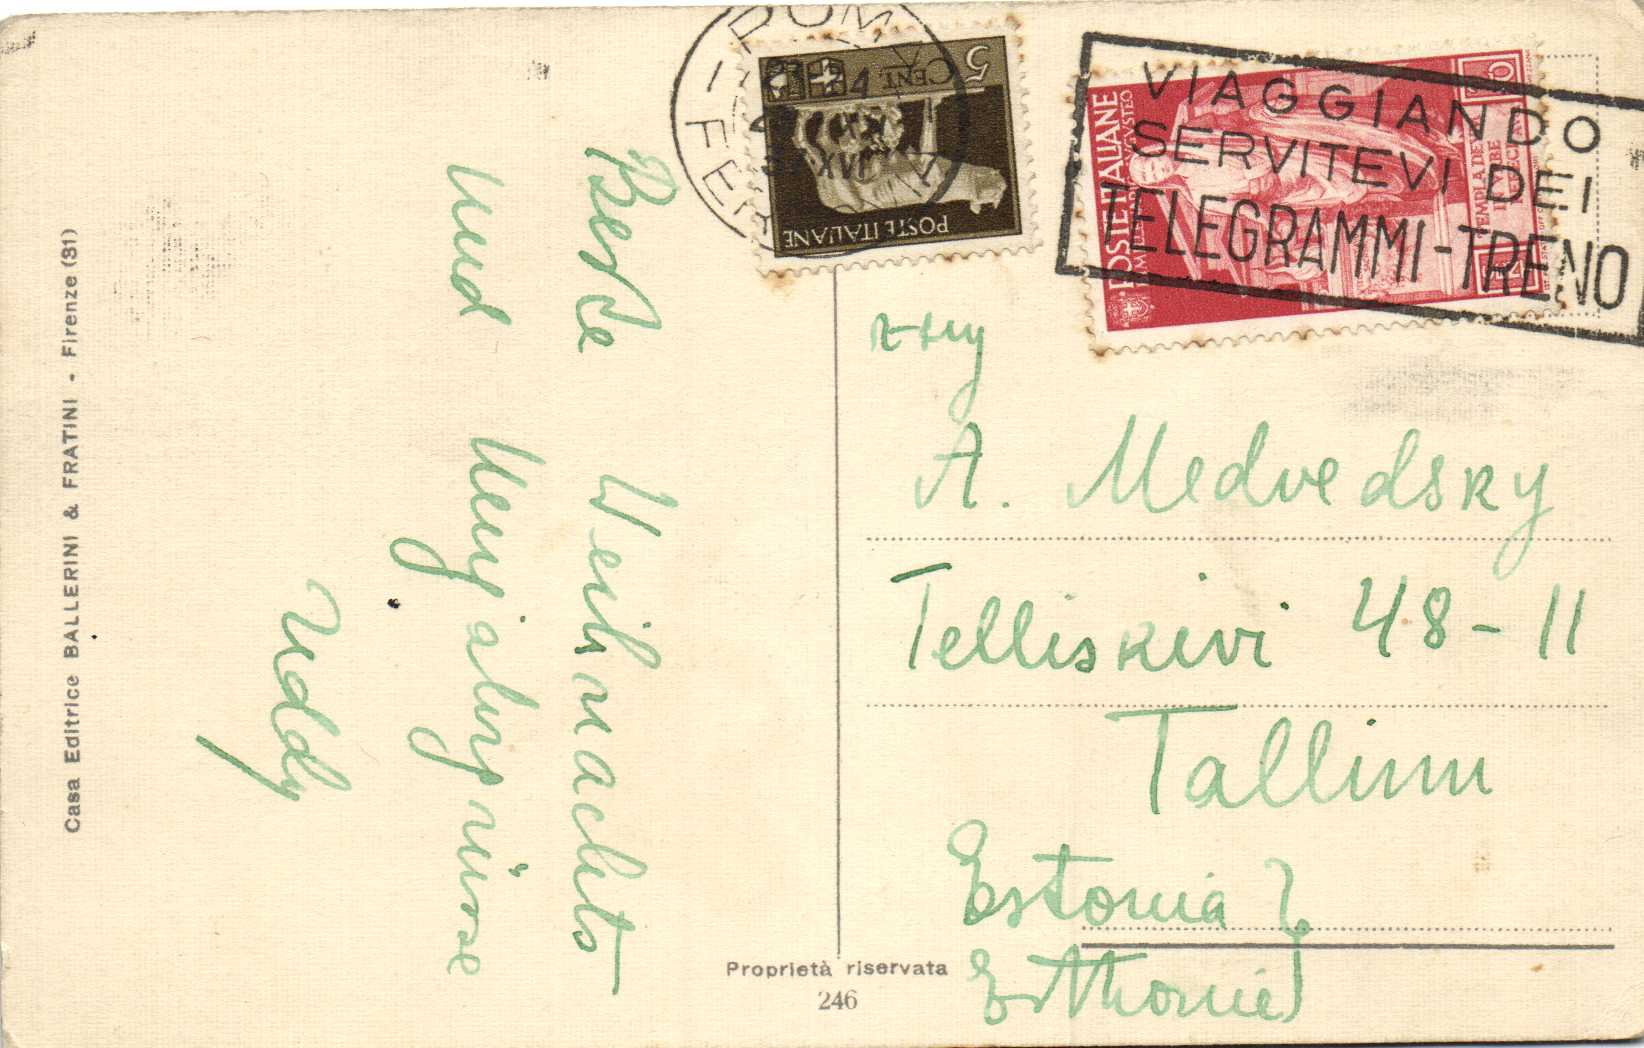 Casa Editrice BALLERINI & FRATINI - Firenze (31)
Beste Weihnachts
und Neujahrgrüsse
Neddy
Proprietà riservata
246
5
CENT.
POSTE ITALIANE
POSTE ITALIANE
VIAGGIANDO
SERVITEVI DEI
TELEGRAMMI-TRENO
ROMA
FERROVIA
XVI
A. Medvedsky
Telliskivi 48-11
Tallinn
Estonia
Esthonie